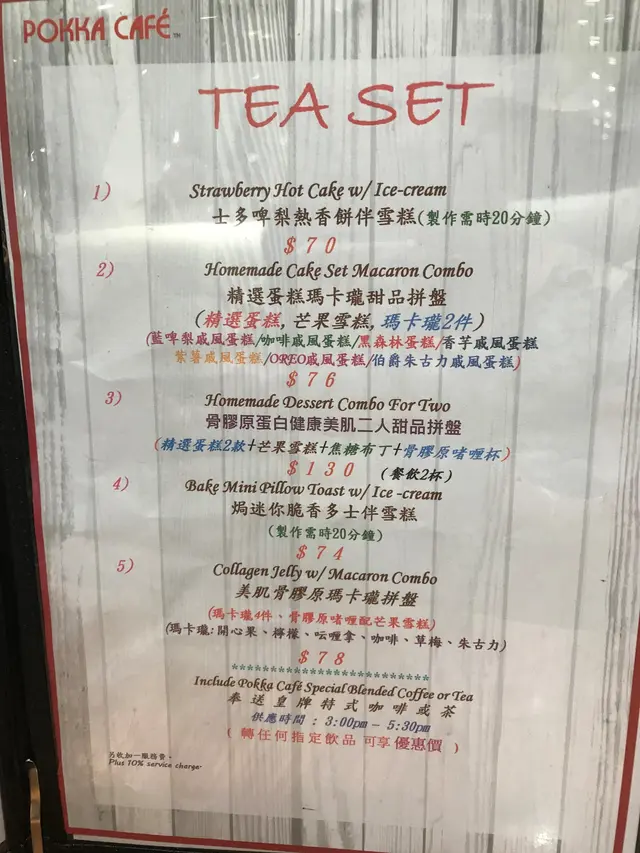 POKKA CAFÉ™
TEA SET
1) Strawberry Hot Cake w/ Ice-cream
士多啤梨熱香餅伴雪糕(製作需時20分鐘)
$70
2) Homemade Cake Set Macaron Combo
精選蛋糕瑪卡瓏甜品拼盤
(精選蛋糕, 芒果雪糕, 瑪卡瓏2件)
(藍啤梨戚風蛋糕/咖啡戚風蛋糕/黑森林蛋糕/香芋戚風蛋糕
紫薯戚風蛋糕/OREO戚風蛋糕/伯爵朱古力戚風蛋糕)
$76
3) Homemade Dessert Combo For Two
骨膠原蛋白健康美肌二人甜品拼盤
(精選蛋糕2款+芒果雪糕+焦糖布丁+骨膠原啫喱杯)
$130 (餐飲2杯)
4) Bake Mini Pillow Toast w/ Ice -cream
焗迷你脆香多士伴雪糕
(製作需時20分鐘)
$74
5) Collagen Jelly w/ Macaron Combo
美肌骨膠原瑪卡瓏拼盤
(瑪卡瓏4件、骨膠原啫喱配芒果雪糕)
(瑪卡瓏:開心果、檸檬、呍喱拿、咖啡、草莓、朱古力)
$78
**************************
Include Pokka Café Special Blended Coffee or Tea
奉送皇牌特式咖啡或茶
供應時間 : 3:00pm – 5:30pm
( 轉任何指定飲品 可享 優惠價 )
另收加一服務費。
Plus 10% service charge.